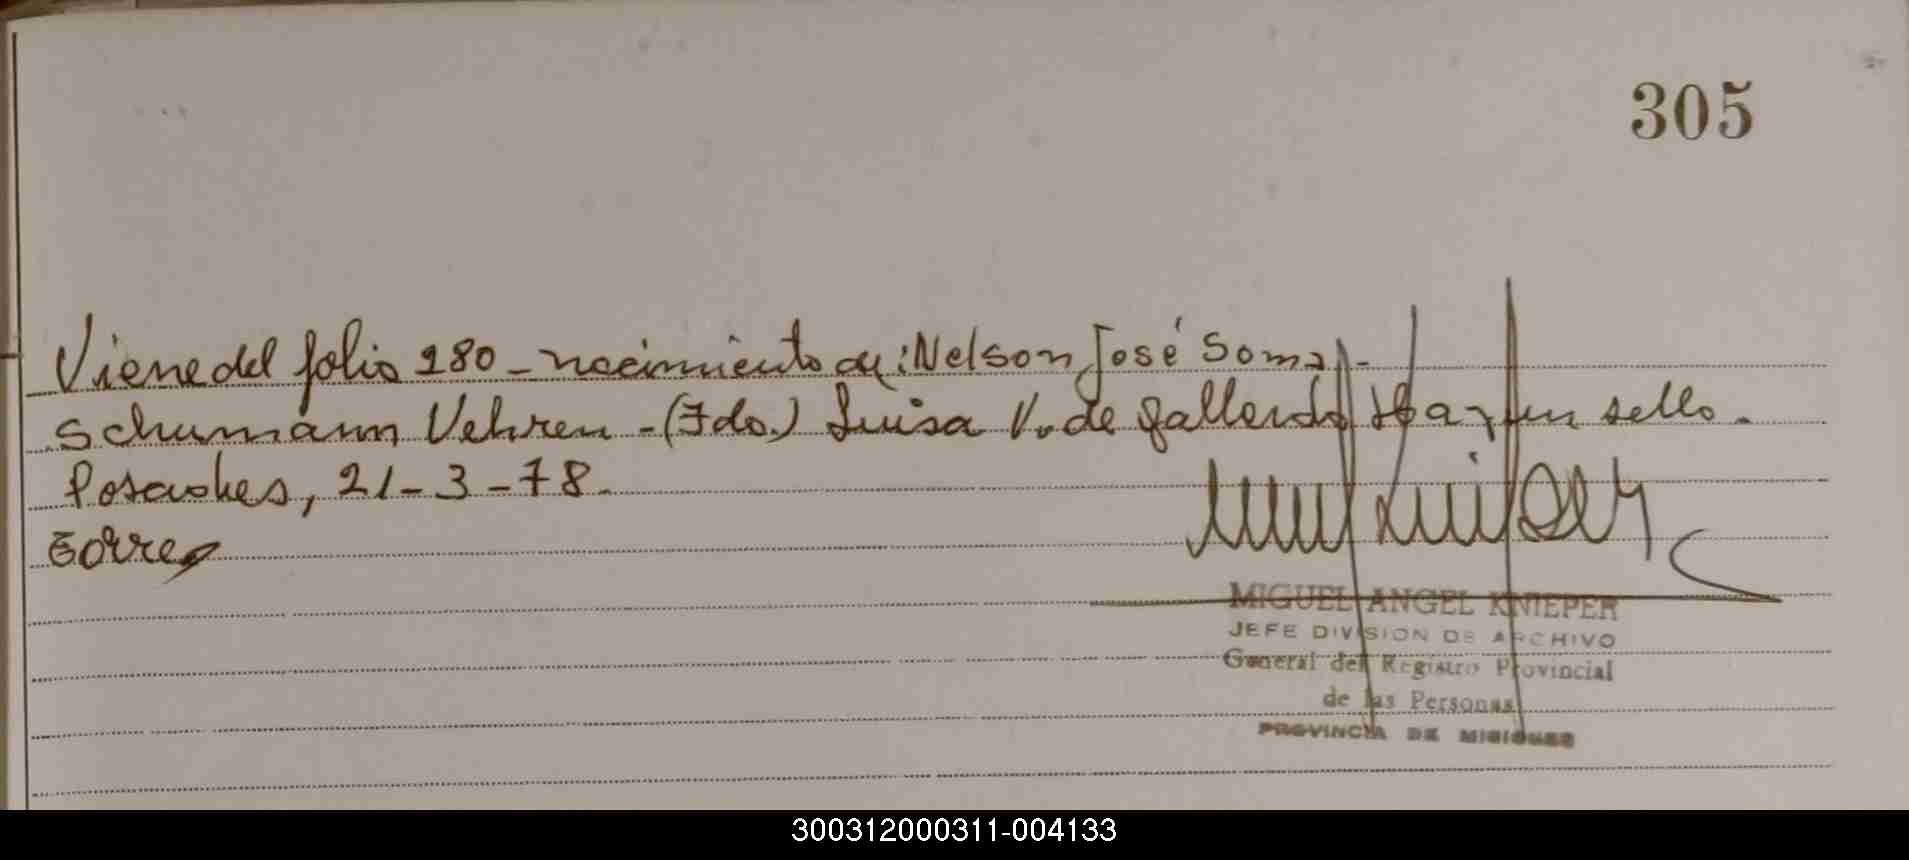 305
Viene del folio 280 - nacimiento de: Nelson José Soma -
Schumann Vehren - (Fdo.) Luisa V. de Gallardo Hay un sello.
Posadas, 21-3-78.
Torres
MIGUEL ANGEL KNIEPER
JEFE DIVISION DE ARCHIVO
General del Registro Provincial
de las Personas
PROVINCIA DE MISIONES
300312000311-004133